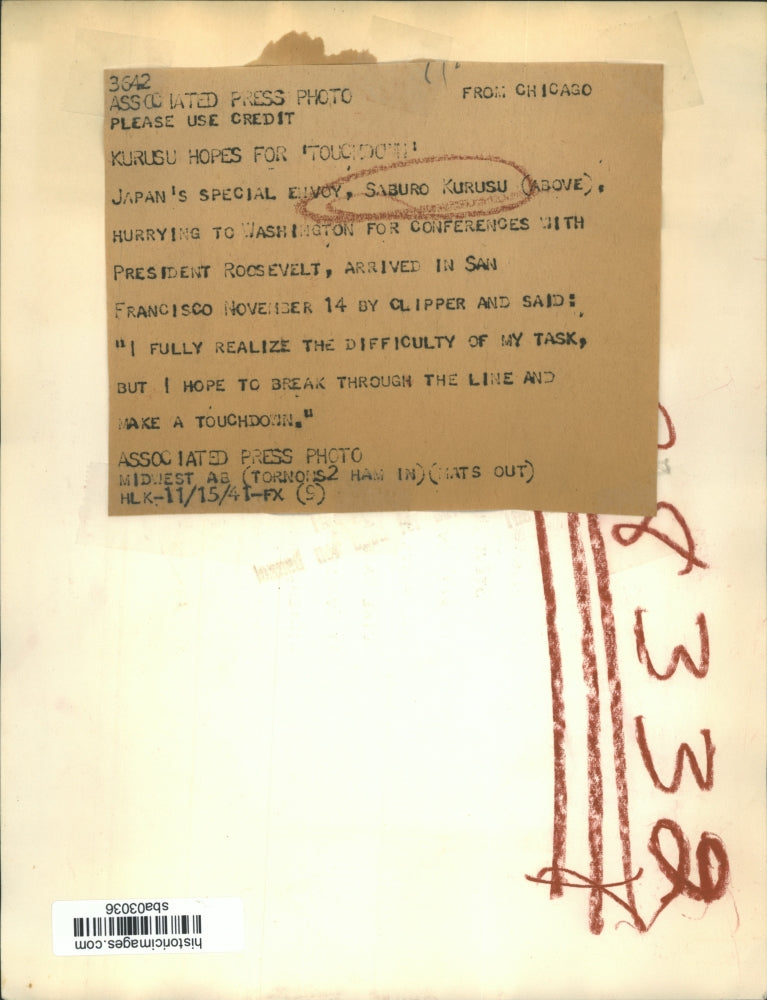 3642
ASSOCIATED PRESS PHOTO FROM CHICAGO
PLEASE USE CREDIT
KURUSU HOPES FOR 'TOUCHDOWN'
JAPAN'S SPECIAL ENVOY, SABURO KURUSU (ABOVE),
HURRYING TO WASHINGTON FOR CONFERENCES WITH
PRESIDENT ROOSEVELT, ARRIVED IN SAN
FRANCISCO NOVEMBER 14 BY CLIPPER AND SAID:
"I FULLY REALIZE THE DIFFICULTY OF MY TASK,
BUT I HOPE TO BREAK THROUGH THE LINE AND
MAKE A TOUCHDOWN."
ASSOCIATED PRESS PHOTO
MIDWEST AB (TORNOMS2 HAM IN)(MATS OUT)
HLK-11/15/41-FX (S)
historicimages.com
sba03036